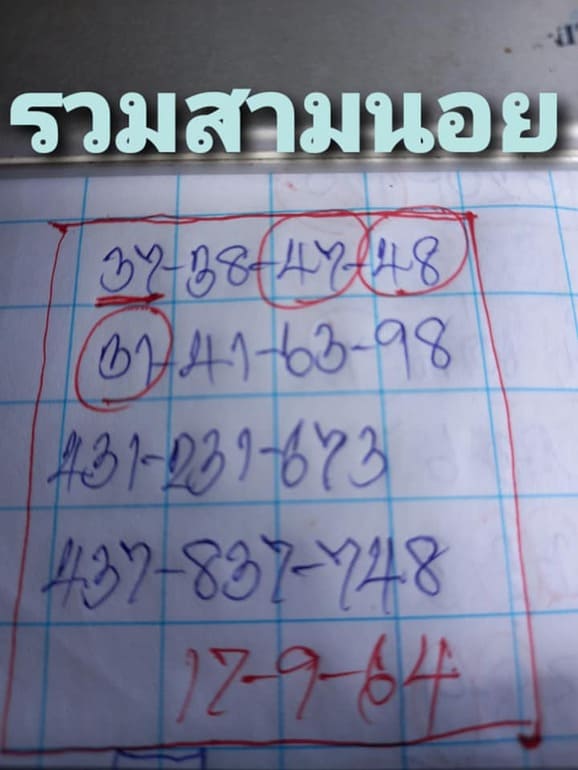 รวมสามนอย
37-38-47-48
31-41-63-98
431-231-673
437-837-748
17-9-64